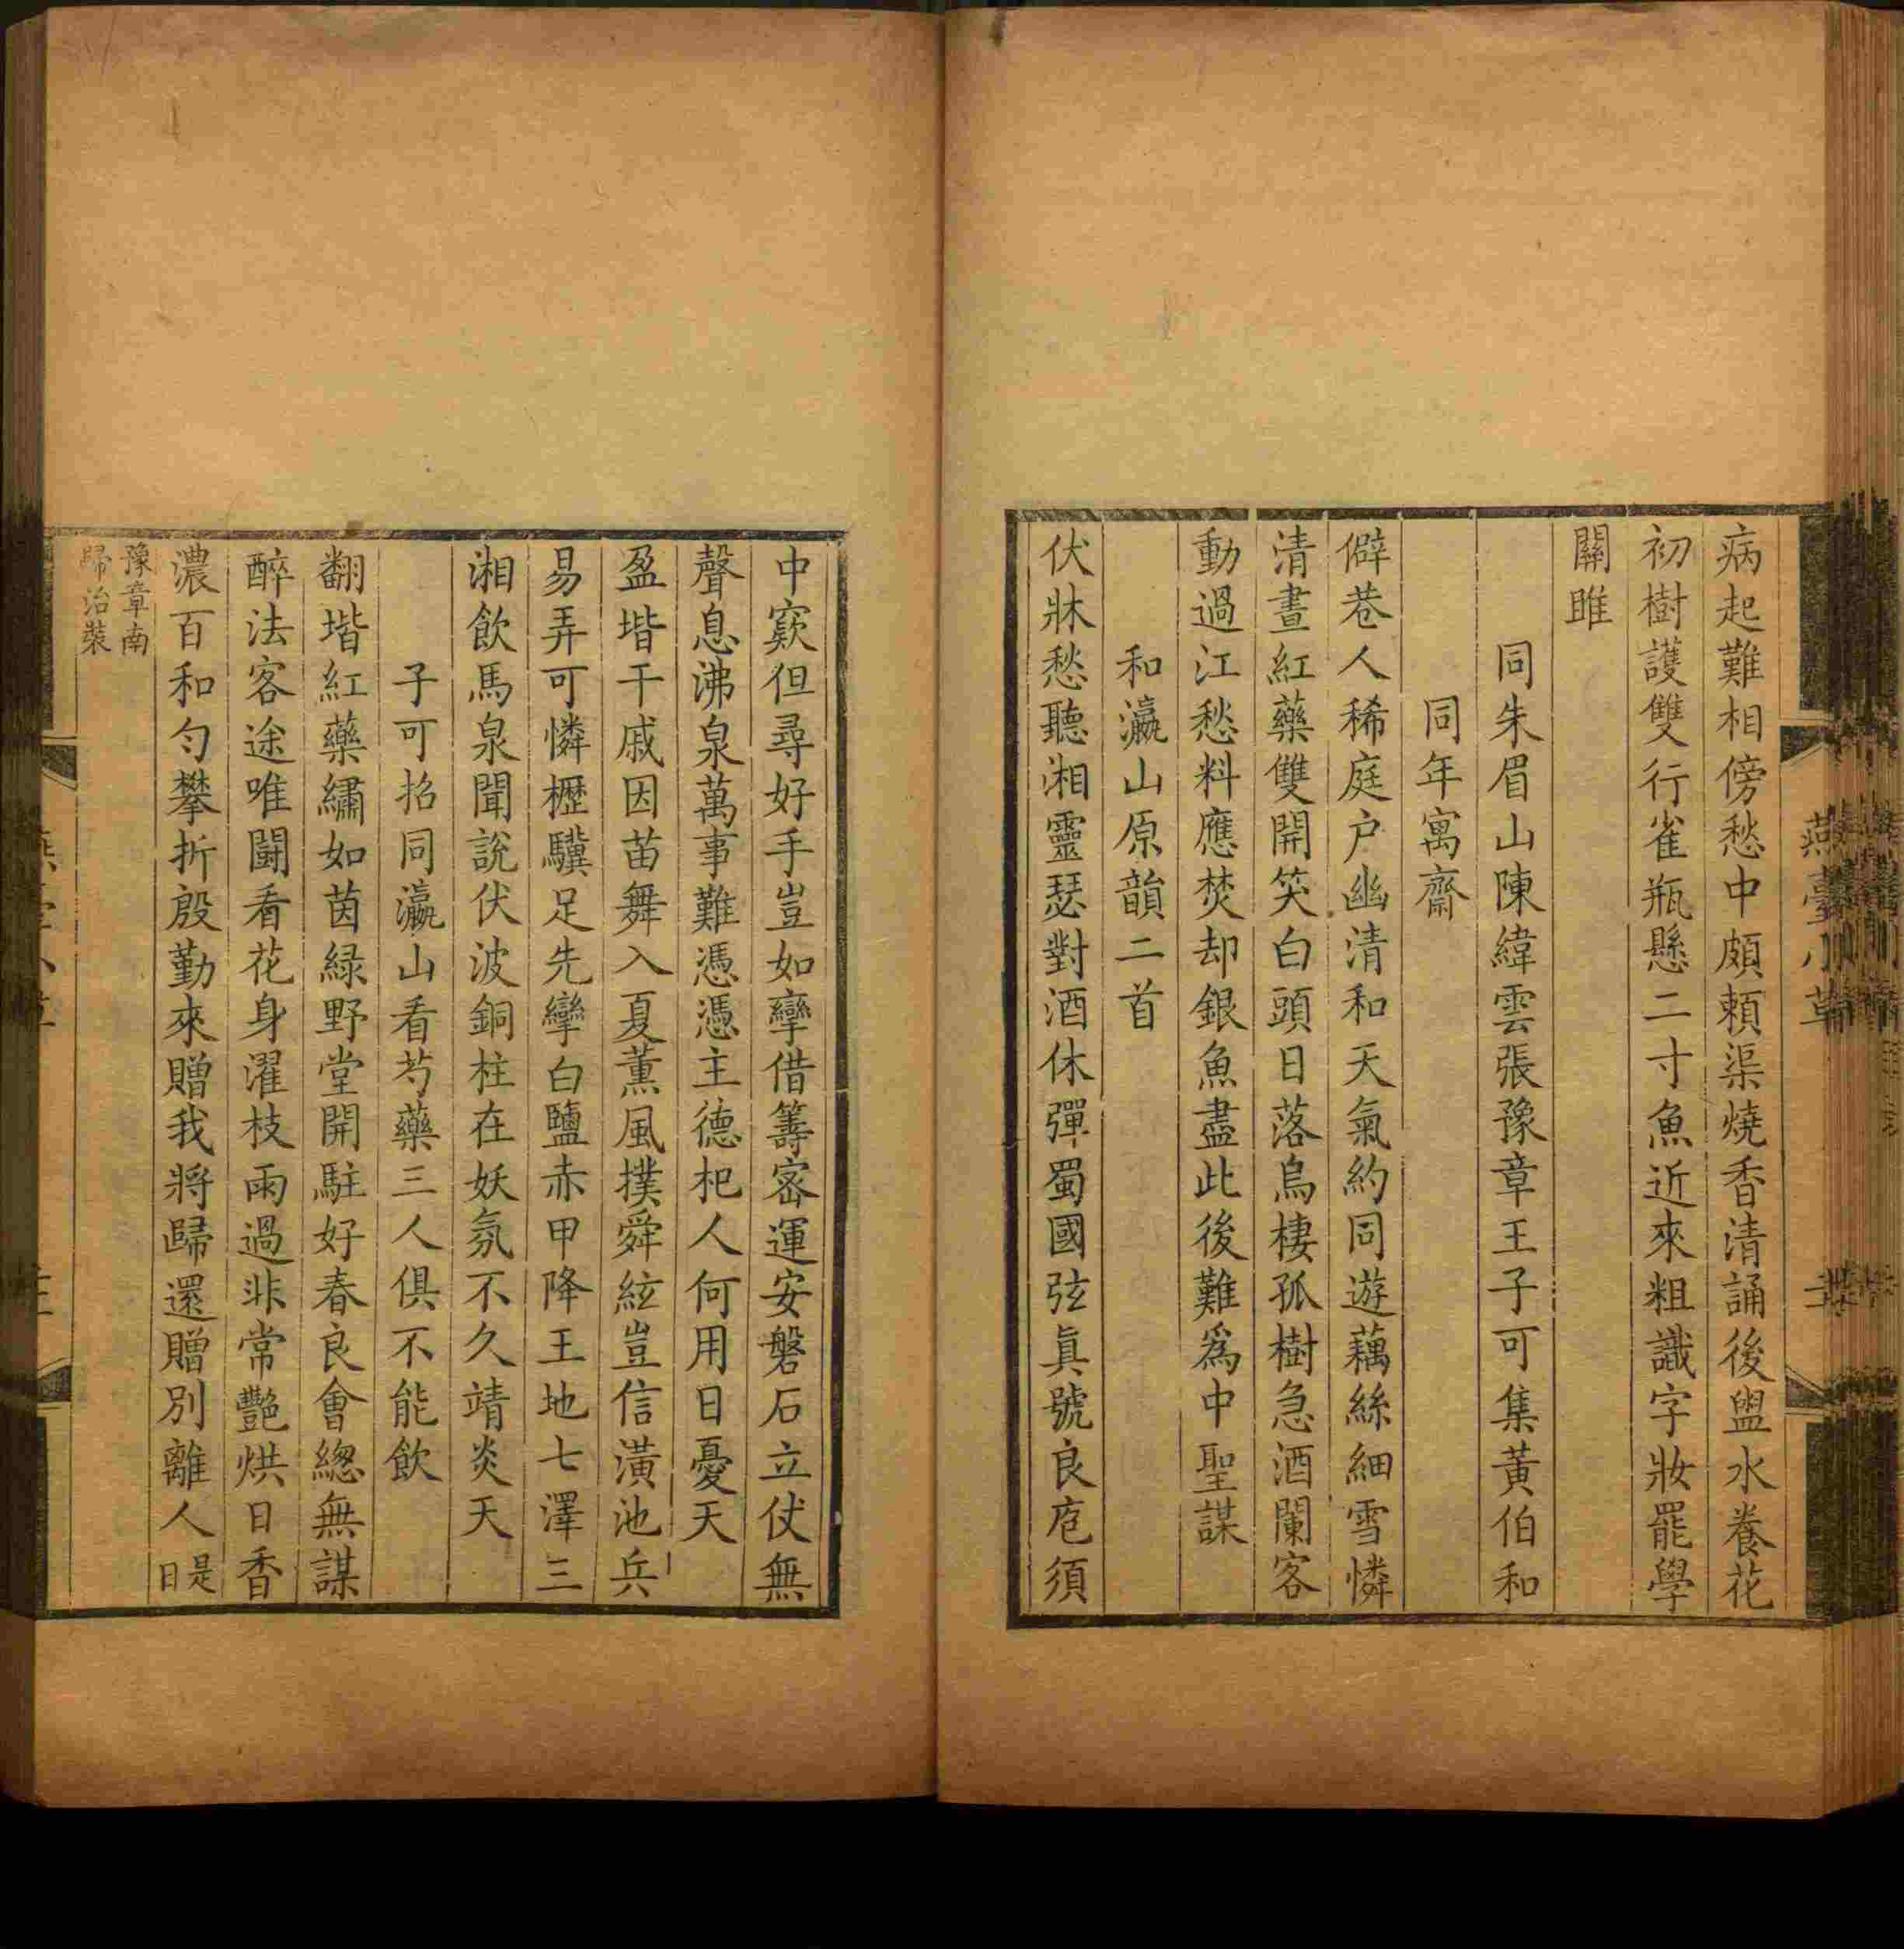 病起難相傍愁中頗賴渠燒香清誦後盥水養花
初樹護雙行雀瓶懸二寸魚近來粗識字妝罷學
關雎
同朱眉山陳緯雲張豫章王子可集黃伯和
同年寓齋
僻巷人稀庭户幽清和天氣約同遊藕絲細雪憐
清晝紅藥雙開笑白頭日落烏棲孤樹急酒闌客
動過江愁料應焚却銀魚盡此後難爲中聖謀
和瀛山原韻二首
伏牀愁聽湘靈瑟對酒休彈蜀國弦眞號良庖須
中窾但尋好手豈如攣借籌密運安磐石立仗無
聲息沸泉萬事難憑憑主德杞人何用日憂天
盈堦干戚因苗舞入夏薰風撲舜絃豈信潢池兵
易弄可憐櫪驥足先攣白鹽赤甲降王地七澤三
湘飲馬泉聞說伏波銅柱在妖氛不久靖炎天
子可招同瀛山看芍藥三人俱不能飲
翻堦紅藥繡如茵緑野堂開駐好春良會總無謀
醉法客途唯鬬看花身濯枝雨過非常艷烘日香
濃百和勻攀折殷勤來贈我將歸還贈別離人是日
豫章南
歸治裝
燕臺小草